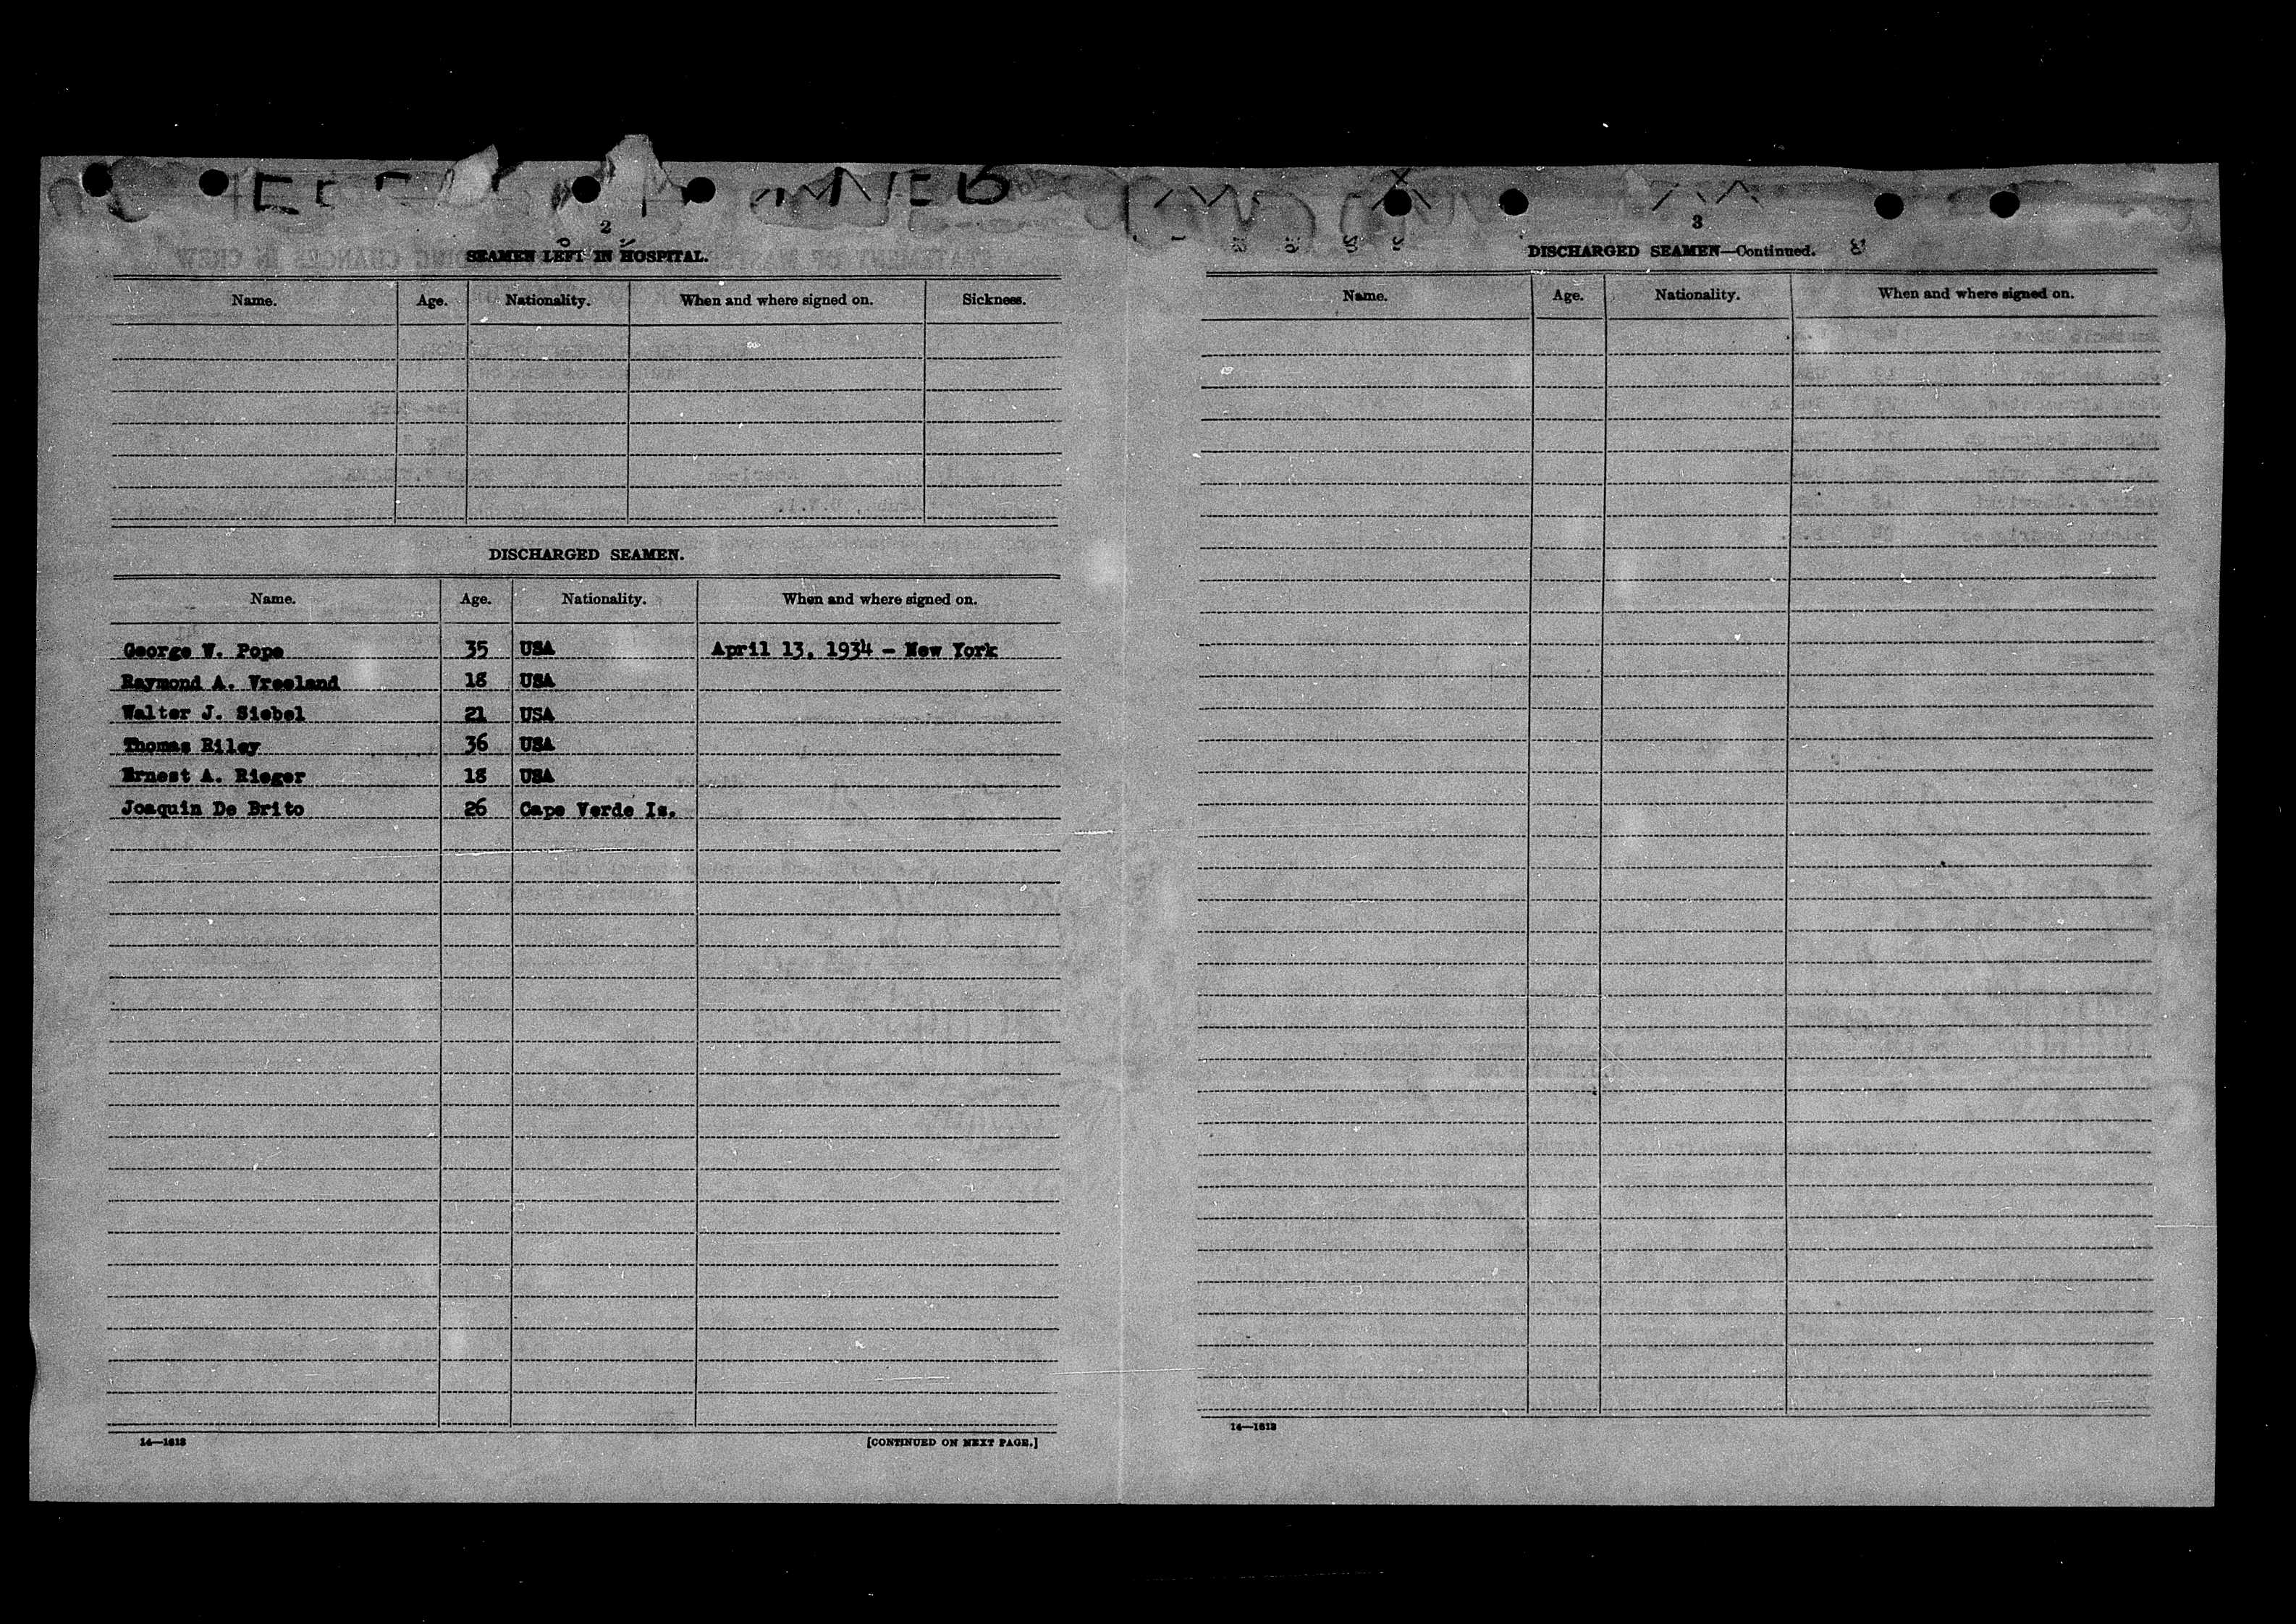 2
SEAMEN LEFT IN HOSPITAL.
Name. Age. Nationality. When and where signed on. Sickness.
DISCHARGED SEAMEN.
Name. Age. Nationality. When and where signed on.
George W. Pope 35 USA April 13, 1934 - New York
Raymond A. Vreeland 18 USA
Walter J. Siebel 21 USA
Thomas Riley 36 USA
Ernest A. Rieger 18 USA
Joaquin De Brito 26 Cape Verde Is.
14—1613
[CONTINUED ON NEXT PAGE.]
3
DISCHARGED SEAMEN—Continued.
Name. Age. Nationality. When and where signed on.
14—1613